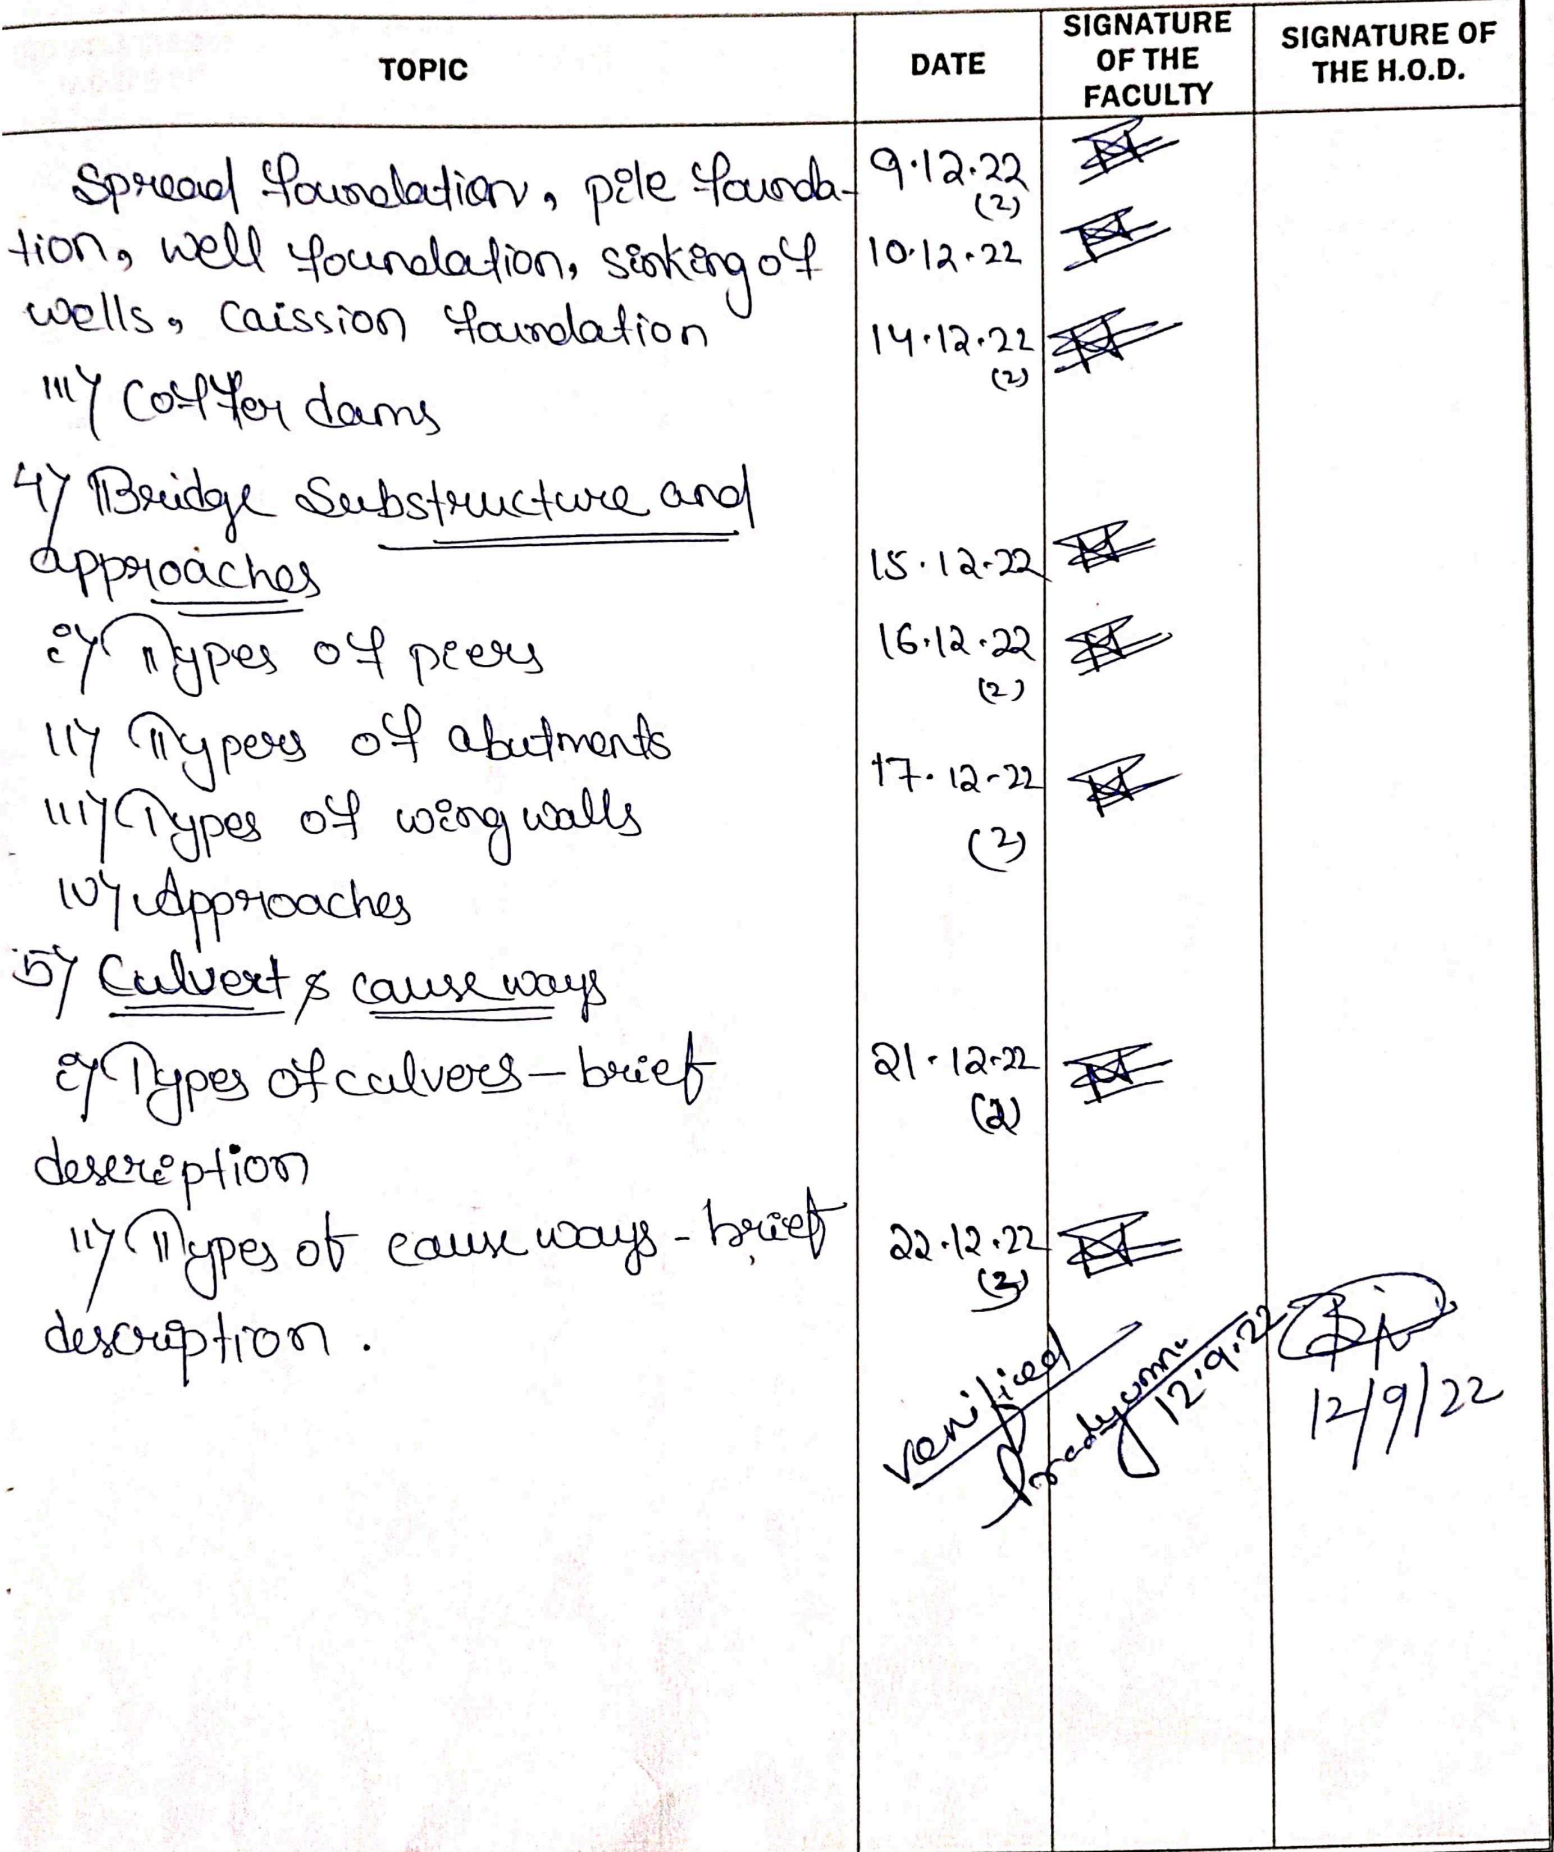 TOPIC DATE SIGNATURE OF THE FACULTY SIGNATURE OF THE H.O.D.
Spread foundation, pile founda- 9.12.22
(2)
tion, well foundation, sinking of 10.12.22
wells, caission foundation 14.12.22
(2)
iii) Coffer dams
4) Bridge Substructure and
approaches 15.12.22
i) Types of piers 16.12.22
(2)
ii) Typers of abutments 17.12.22
iii) Types of wing walls (2)
iv) Approaches
5) Culvert & cause ways
i) Types of culvers - brief 21.12.22
(2)
description
ii) Types of cause ways - brief 22.12.22
description.
verified
Pradyumna
12.9.22
12/9/22